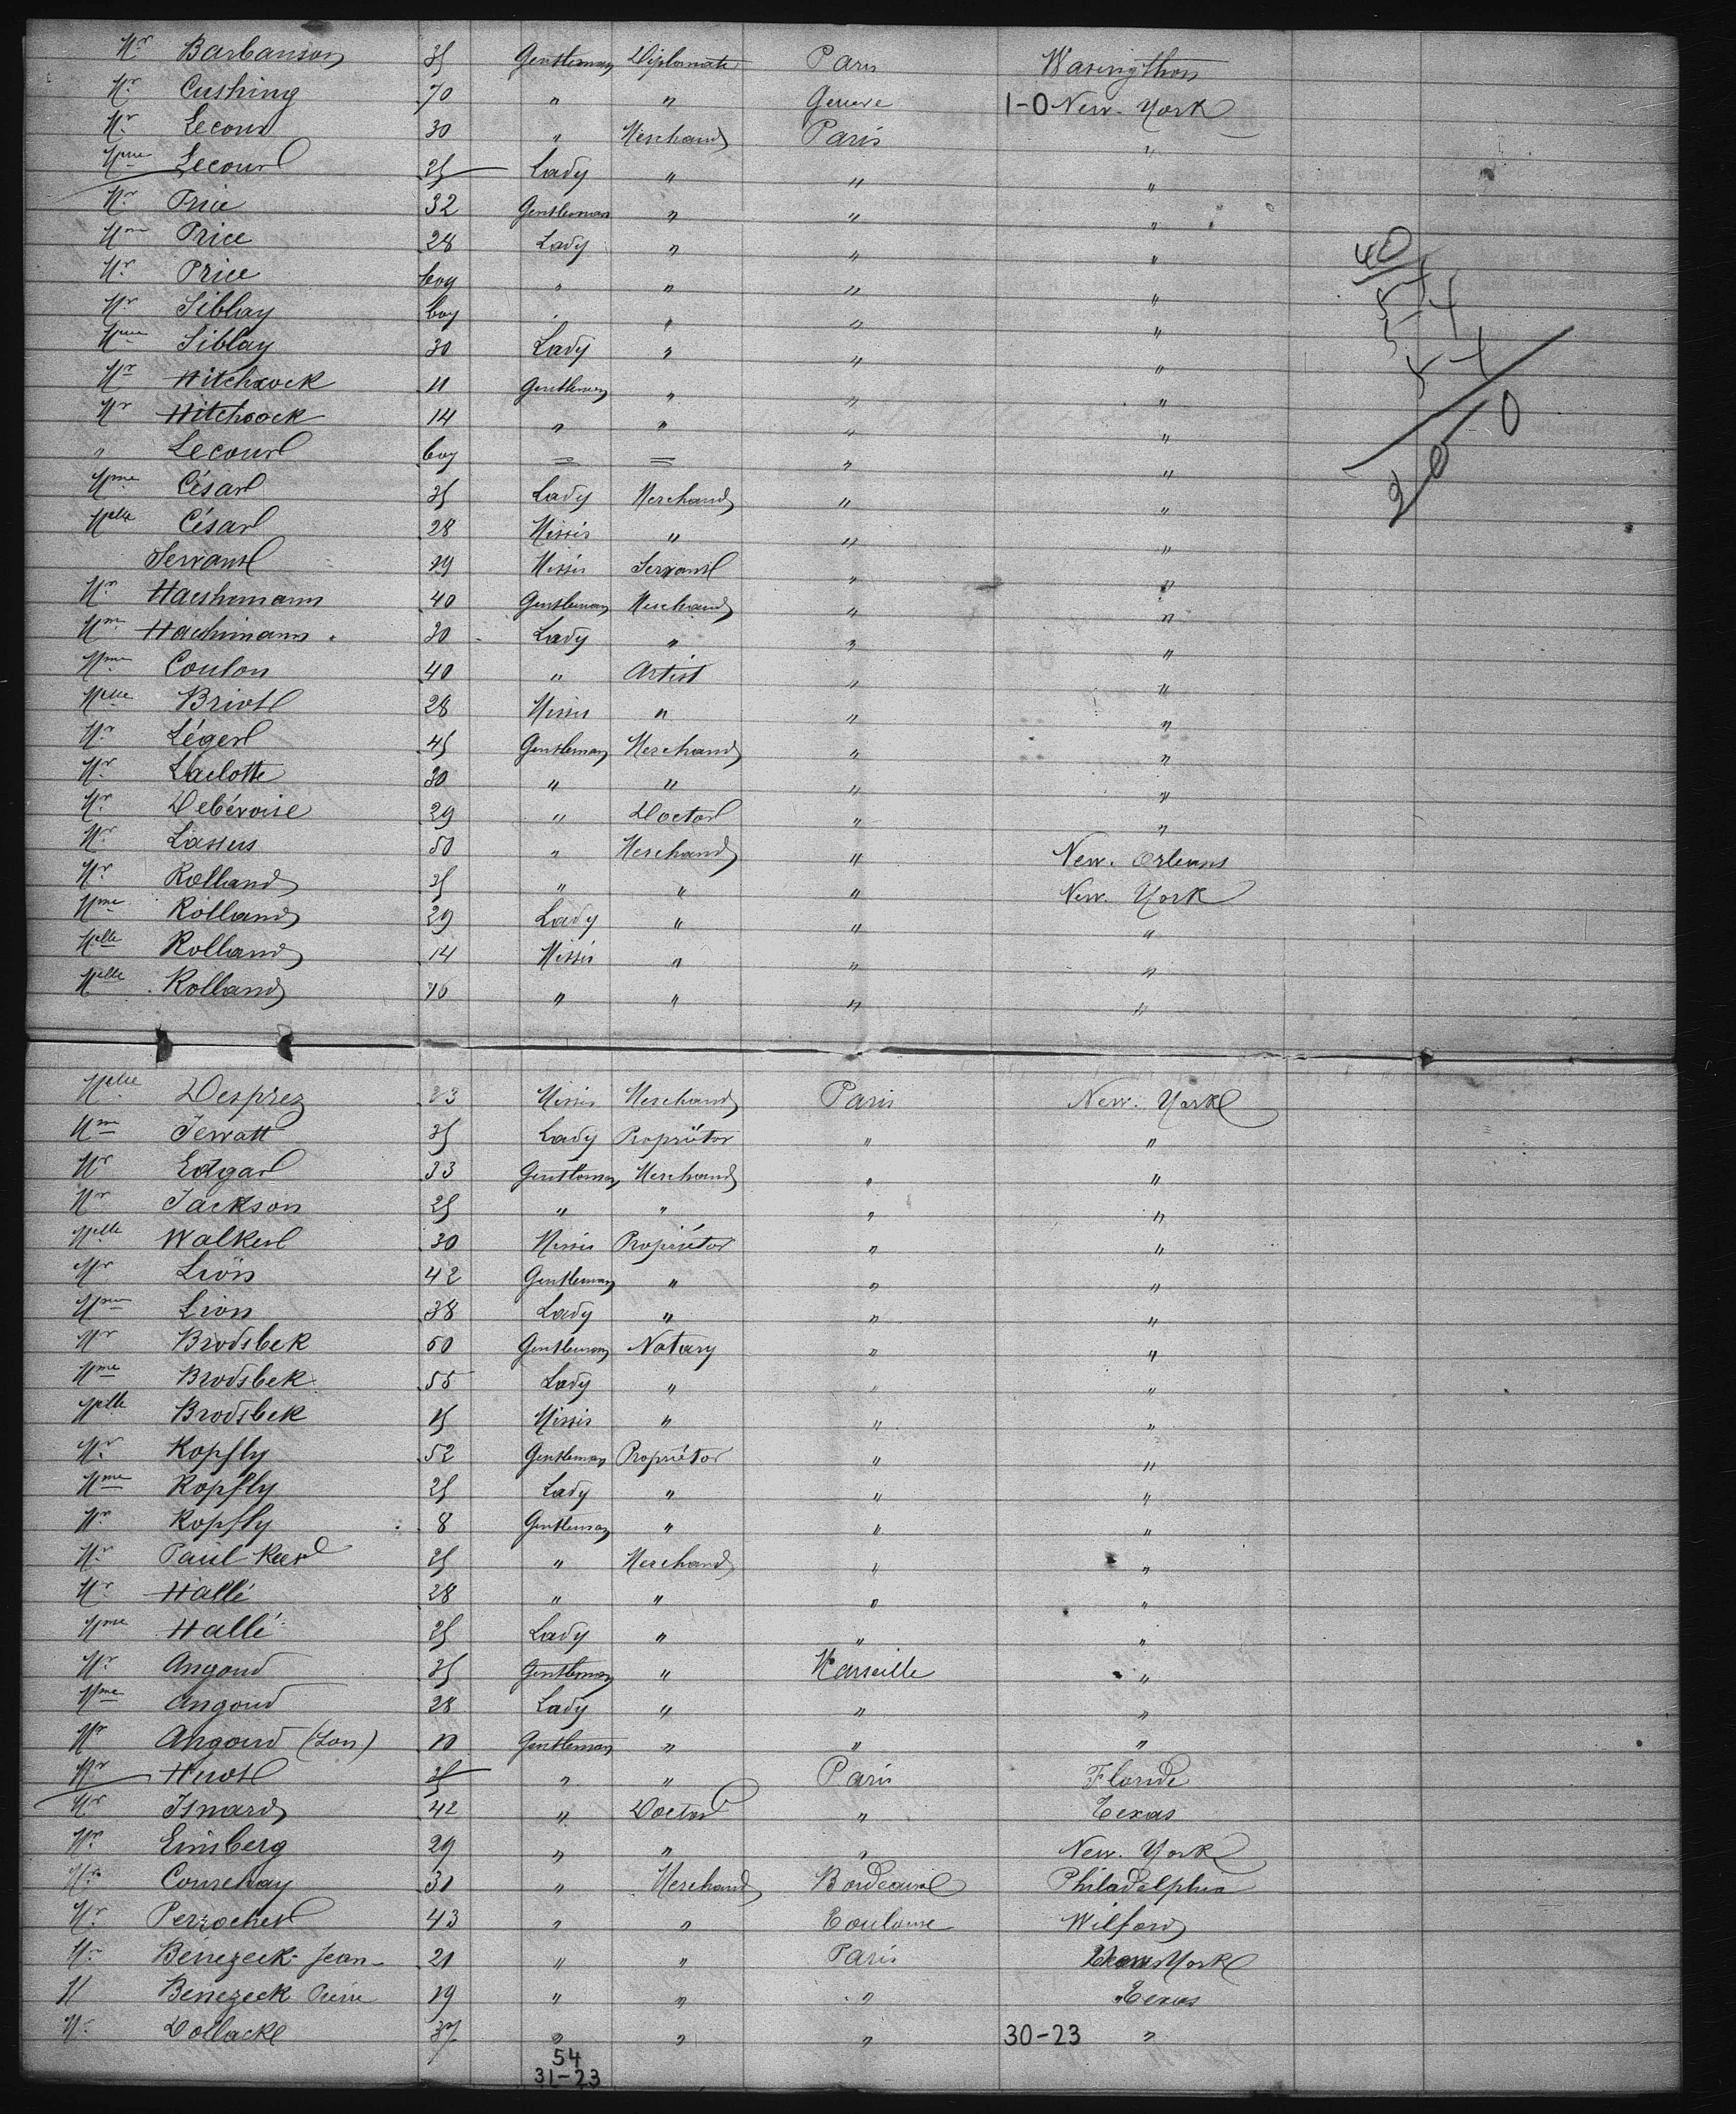 Mr Barbanson 35 Gentleman Diplomate Paris Wasingthon
Mr Cushing 70 " " Geneve 1-0 New-York
Mr Lecour 30 " Merchand Paris "
Mme Lecour 25 Lady " " "
Mr Price 32 Gentleman " " "
Mme Price 28 Lady " " "
Mr Price boy " " " "
Mr Siblay boy " " " "
Mme Siblay 30 Lady " " "
Mr Hitchcock 11 Gentleman " " "
Mr Hitchcock 14 " " " "
" Lecour boy = = " "
Mme César 35 Lady Merchand " "
Melle César 28 Missis " " "
Servant 29 Missis Servant " "
Mr 40 Gentleman Merchand " "
Mme 30 Lady " " "
Mme Coulon 40 " Artist " "
Melle Briot 28 Missis " " "
Mr Léger 45 Gentleman Merchand " "
Mr Laclotte 30 " " " "
Mr Debévoise 29 " Doctor " "
Mr Lassus 50 " Merchand " New-Orleans
Mr Rolland 35 " " " New-York
Mme Rolland 29 Lady " " "
Melle Rolland 14 Missis " " "
Melle Rolland 16 " " " "
40
5-4
5-4
20-0
Melle Desprez 23 Missis Merchand Paris New-York
Mme 35 Lady Propriétor " "
Mr Edgar 33 Gentleman Merchand " "
Mr Jackson 25 " " " "
Melle Walker 30 Missis Propriétor " "
Mr Lion 42 Gentleman " " "
Mme Lion 38 Lady " " "
Mr Brodsbek 60 Gentleman Notary " "
Mme Brodsbek 55 Lady " " "
Melle Brodsbek 15 Missis " " "
Mr Kopfly 52 Gentleman Propriétor " "
Mme Kopfly 25 Lady " " "
Mr Kopfly 8 Gentleman " " "
Mr Paul 25 " Merchand " "
Mr Hallé 28 " " " "
Mme Hallé 25 Lady " " "
Mr Angoud 35 Gentleman " Marseille "
Mme Angoud 28 Lady " " "
Mr Angoud (Son) 10 Gentleman " " "
Mr 35 " " Paris Floride
Mr Isnard 42 " Doctor " Texas
Mr Einsberg 29 " " " New-York
Mr Courchay 30 " Merchand Bordeaux Philadelphia
Mr Perrochet 43 " " Toulouse Wilford
Mr Benezeck Jean 21 " " Paris New York
M Benezeck Pierre 19 " " " Texas
Mr Dollack 37 " " " 30-23 "
54
31-23